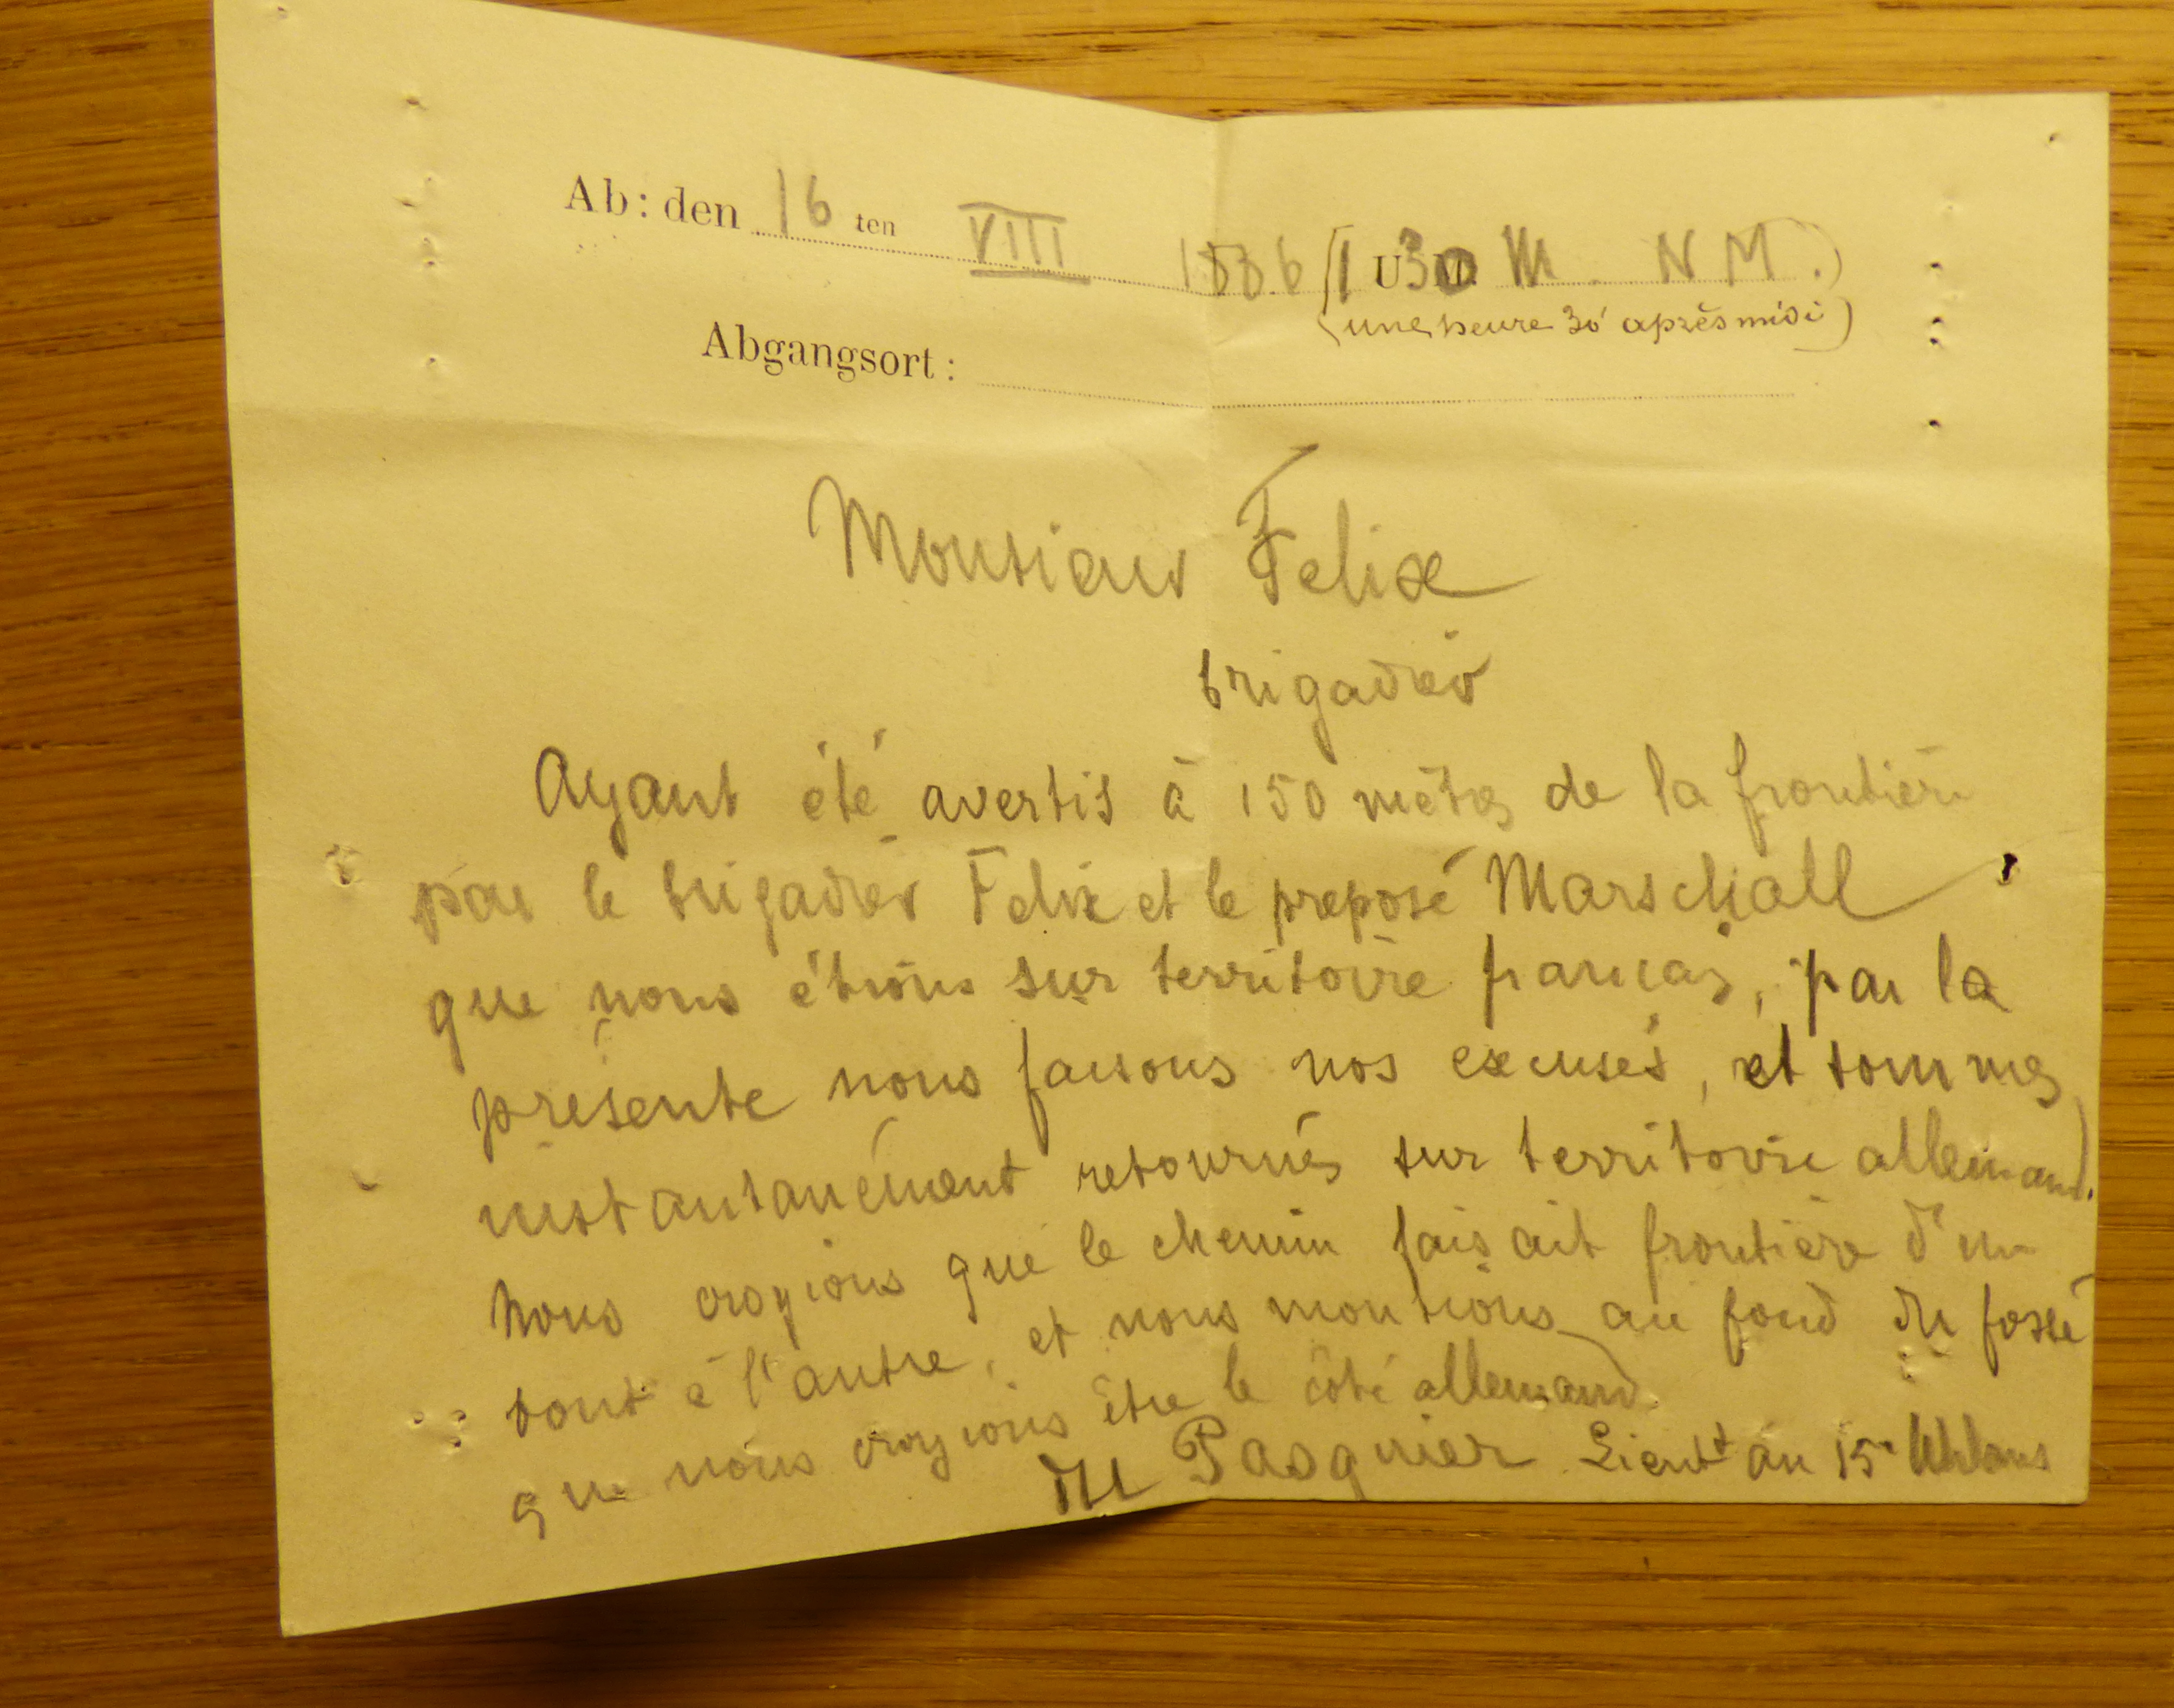 Ab: den 16 ten VIII 1886 (1 U 30 M. N M.)
(une heure 30' après midi)
Abgangsort:
Monsieur Felix
brigadier
Ayant été avertis à 150 mètres de la frontière
par le brigadier Felix et le préposé Marschall
que nous étions sur territoire français, par la
présente nous faisons nos excuses, et sommes
instantanément retournés sur territoire allemand.
Nous croyions que le chemin faisait frontière d'un
bout à l'autre, et nous montions au fond du fossé
que nous croyions être le côté allemand.
du Pasquier Lieut^t au 15^e Uhlans